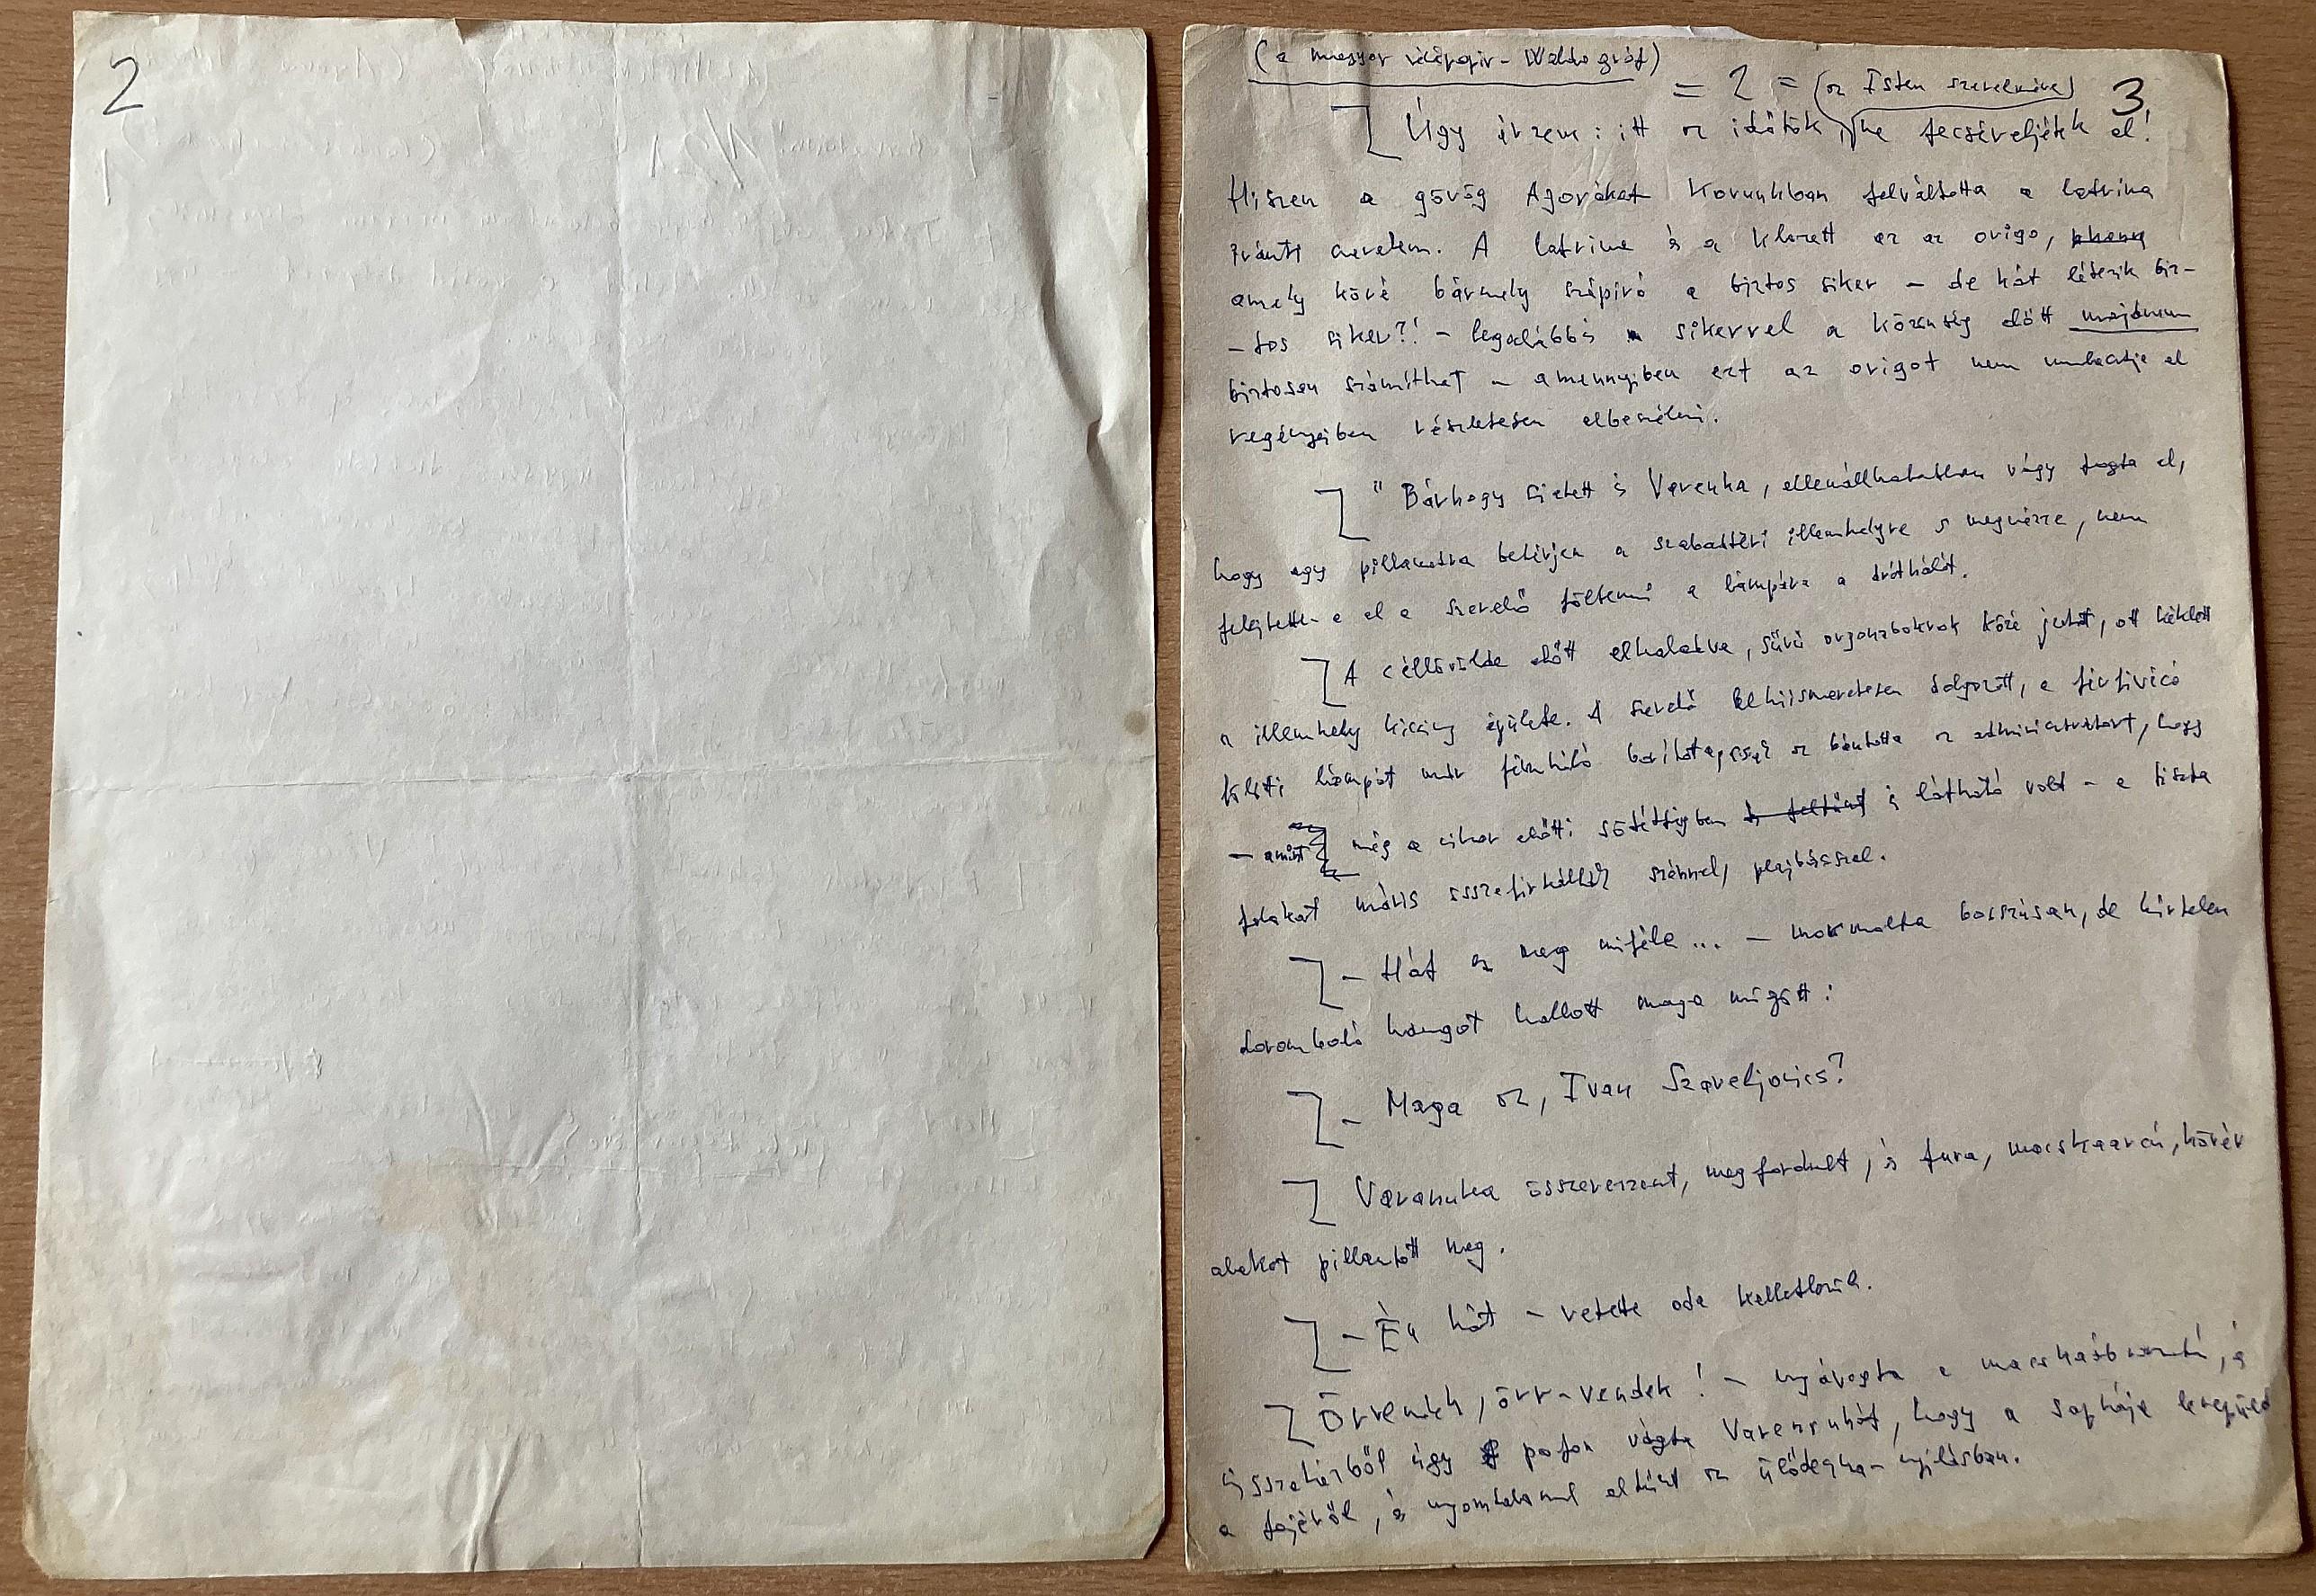 2
(a magyar
= 2 = (az Isten szerelmére) 3
Úgy érzem: itt az időtök, ne fecséreljétek el!
Hiszen a görög Agorákat Korunkban felváltotta a latrina
iránti szerelem. A latrina és a klozett az az origo,
amely köré bármely szépíró a biztos siker – de hát létezik biz-
-tos siker?! – legalábbis sikerrel a közönség előtt majdnem
biztosan számíthat – amennyiben ezt az origot nem mulasztja el
regényeiben részletesen elbeszélni.
" Bárhogy sietett is Varenuha, ellenállhatatlan vágy fogta el,
hogy egy pillanatra betérjen a szabadtéri illemhelyre s megnézze, nem
felejtette-e el a szerelő föltenni a lámpára a dróthálót.
A céllövölde előtt elhaladva, sűrű orgonabokrok közé jutott, ott kéklett
az illemhely kicsiny épülete. A szerelő lelkiismeretesen dolgozott, a férfivécé
fölötti lámpát már fémháló borította, az bántotta az adminisztrátort, hogy
– amint még a vihar előtti sötétségben is látható volt – a tiszta
falakat máris összefirkálták szénnel, plajbásszal.
– Hát ez meg miféle ... – mormolta bosszúsan, de hirtelen
doromboló hangot hallott maga mögött:
– Maga az, Ivan Szaveljovics?
Varenuha összerezzent, megfordult, és fura, macskaarcú, kövér
alakot pillantott meg.
– Én hát – vetette oda kelletlenül.
Örvendek, örr-vendek! – nyávogta a macskaábrázatú, és
összeteérből úgy pofon vágta Varenuhát, hogy a sapkája lerepült
a fejéről, és nyomtalanul eltűnt az ülődeszka-nyílásban.